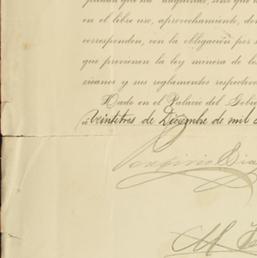 en el libre uso, aprovechamiento, do
corresponden, con la obligación por s
que previenen la ley minera de los
xicanos y sus reglamentos respectivo
Dado en el Palacio del Gobie
á veintitres de Diciembre de mil o
Porfirio Diaz